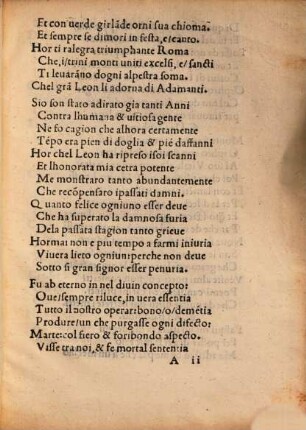 Et con uerde girlãde orni sua chioma.
Et sempre se dimori in festa, e/canto.
Hor ti ralegra triumphante Roma
Che, i/truni monti uniti excelsi, e/sancti
Ti leuarãno dogni alpestra soma.
Chel grã Leon li adorna di Adamanti.
Sio son stato adirato gia tanti Anni
Contra lhumana & uitiosa gente
Ne fo cagion che alhora certamente
Tẽpo era pien di doglia & pie daffanni
Hor chel Leon ha ripreso isoi scanni
Et lhonorata mia cetra potente
Me monstraro tanto abundantemente
Che recõpensaro ipassati damni.
Quanto felice ogniuno esser deue
Che ha superato la damnosa furia
Dela passata stagion tanto grieue
Hormai non e piu tempo a farmi iniuria
Viuera lieto ogniun: perche non deue
Sotto si gran signor esser penuria.
Fu ab eterno in nel diuin concepto:
Oue/sempre riluce, in uera essentia
Tutto il nostro operar: bono/o/demẽtia
Produre/un che purgasse ogni difecto:
Marte: col fiero & foribondo aspecto.
Visse tra noi, & fe mortal sententia
A ii